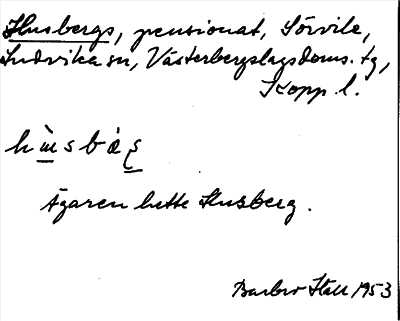 Husbergs, pensionat, Sörvik,
Ludvika sn, Västerbergslags doms. tg,
Kopp l.
Ägaren hette Husberg.
Barbro Ståll 1953